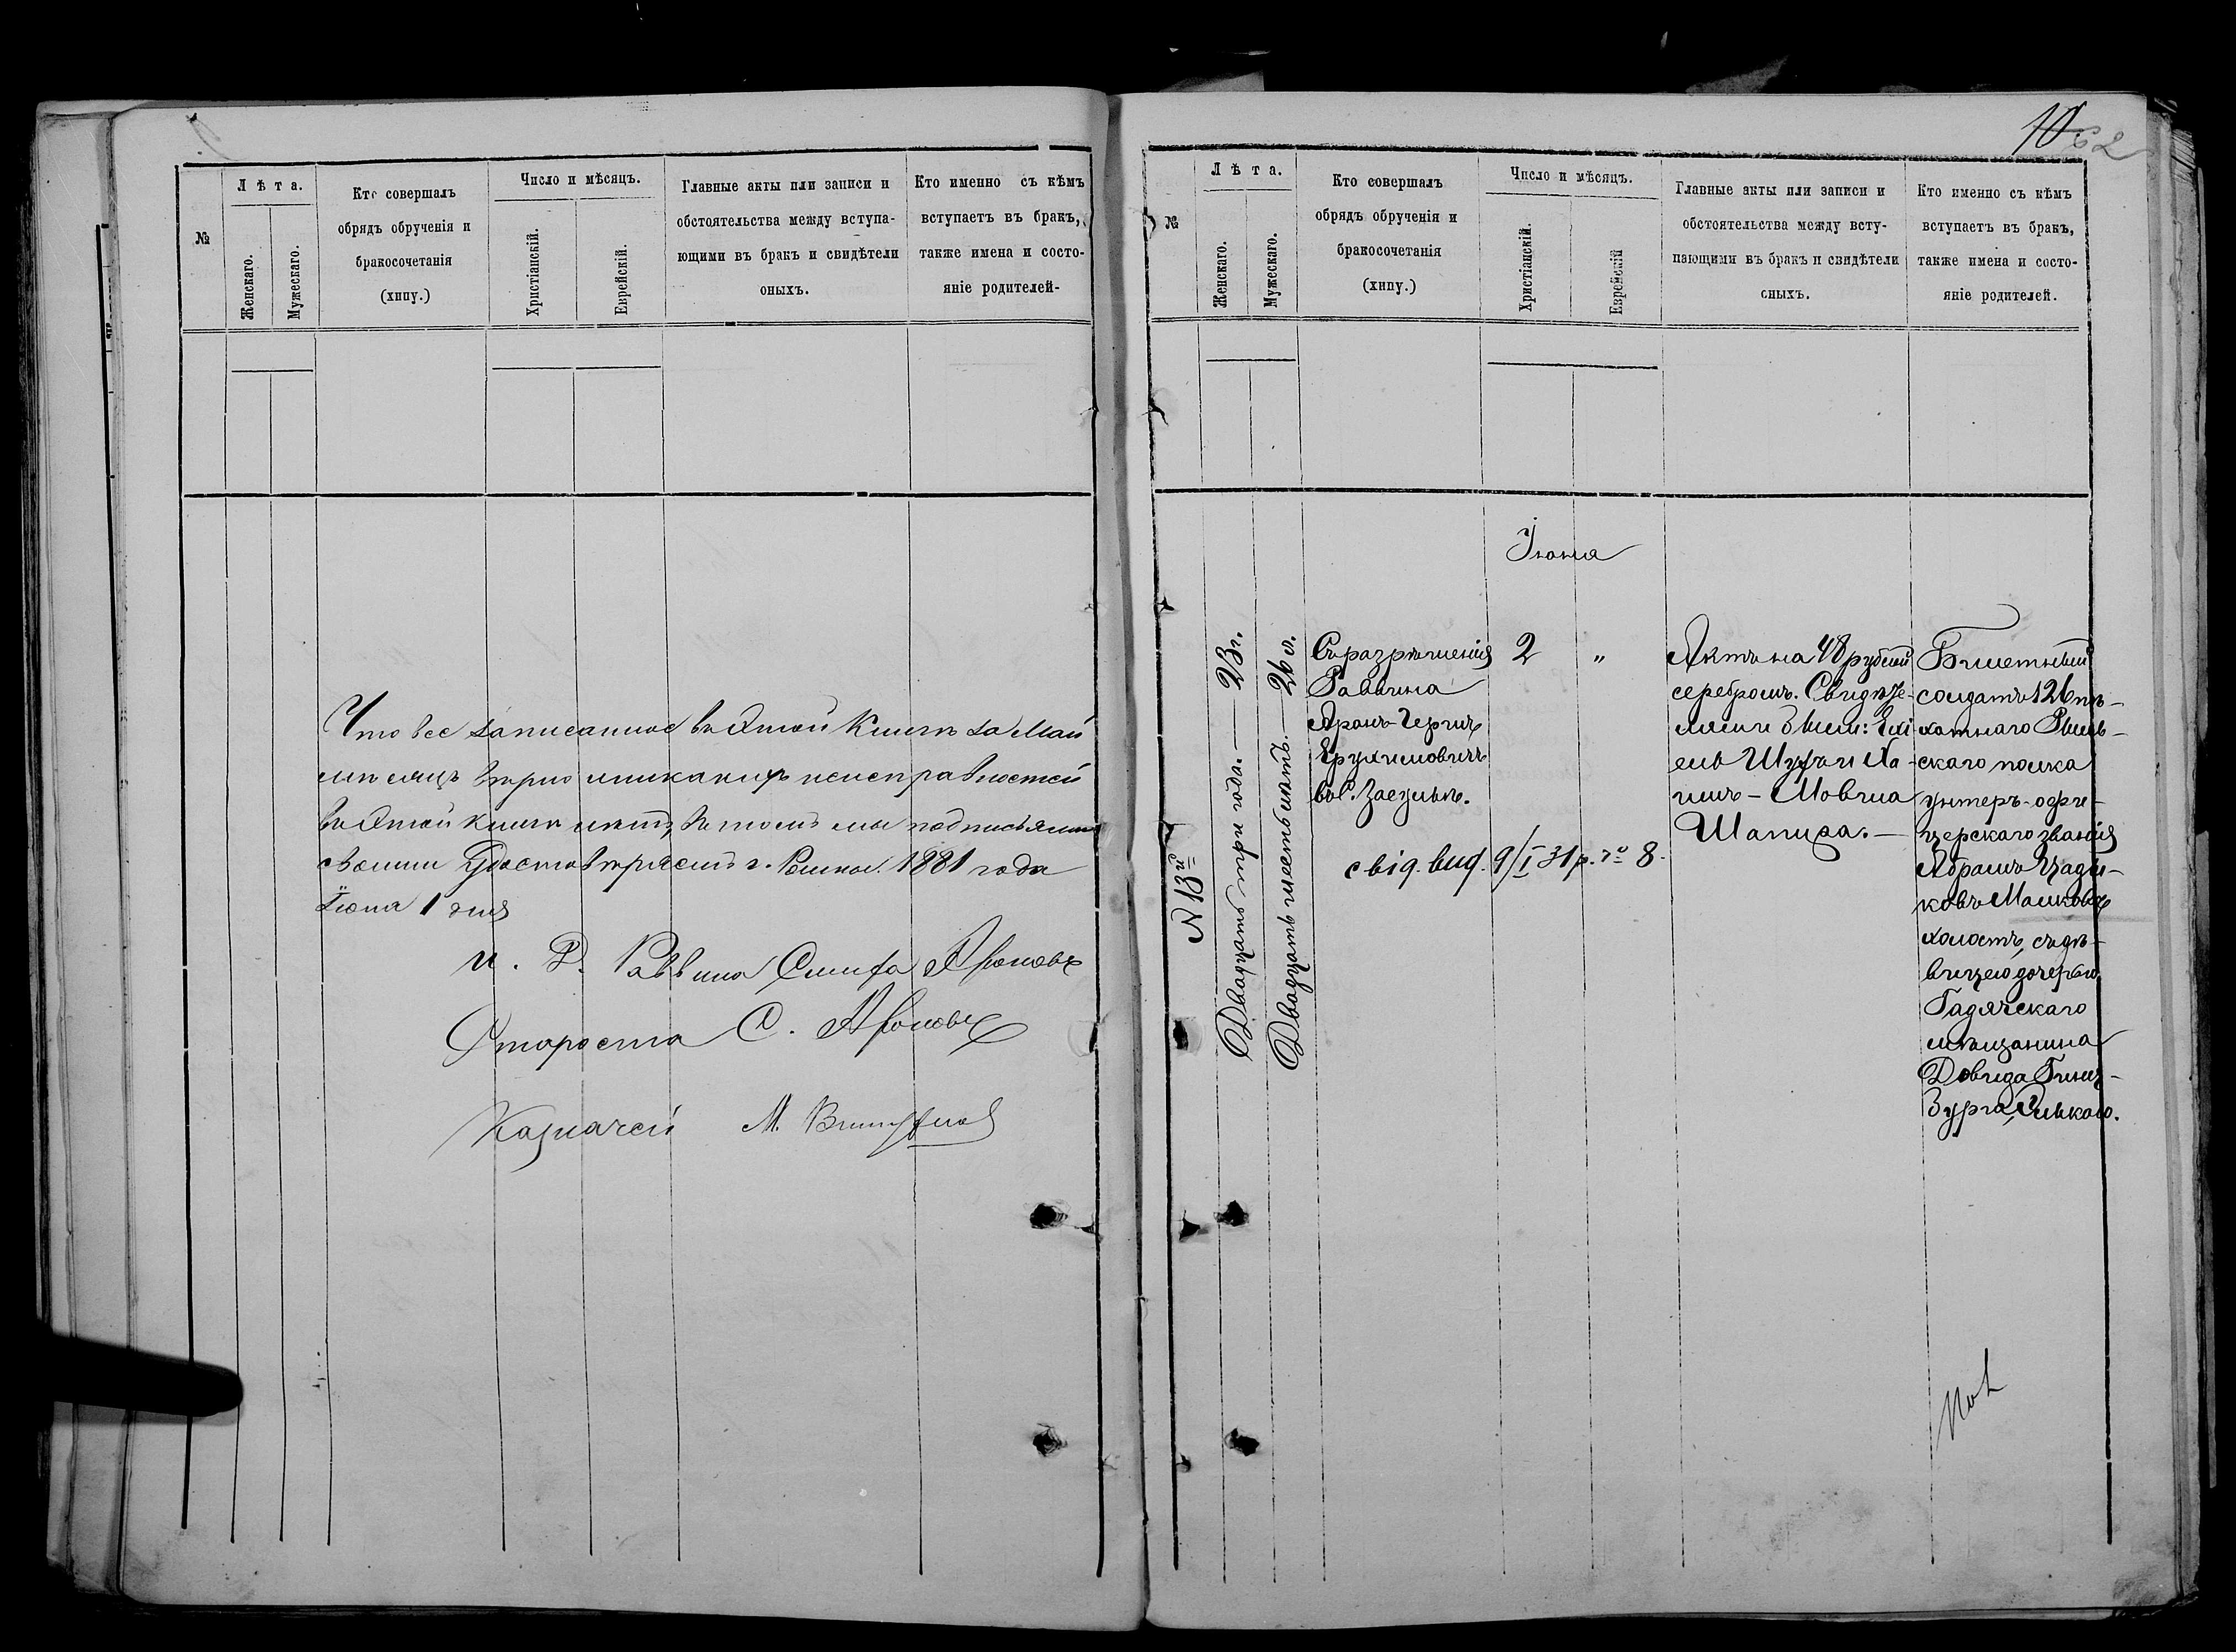 №
Лѣта.
Женскаго.
Мужескаго.
Кто совершалъ
обрядъ обрученія и
бракосочетанія
(хипу.)
Число и мѣсяцъ.
Христіанскій.
Еврейскій.
Главные акты или записи и
обстоятельства между вступа-
ющими въ бракъ и свидѣтели
оныхъ.
Кто именно съ кѣмъ
вступаетъ въ бракъ,
также имена и состо-
яніе родителей-
Что все записанное въ этой книгѣ за Май
мѣсяцъ вѣрно и никакихъ неисправностей
въ этой книгѣ нѣтъ, въ томъ мы подписями
своими удостовѣряемъ г. 1881 года
Іюня 1 дня
и. Д. Раввина Ароновъ
Староста С. Ароновъ
Казначей М.
10
62
№
Лѣта.
Женскаго.
Мужескаго.
Кто совершалъ
обрядъ обрученія и
бракосочетанія
(хипу.)
Число и мѣсяцъ.
Христіанскій.
Еврейскій
Главные акты или записи и
обстоятельства между всту-
пающими въ бракъ и свидѣтели
оныхъ.
Кто именно съ кѣмъ
вступаетъ въ бракъ,
также имена и состо-
яніе родителей.
Іюня
N 13й
Двадцать три года. — 23 г.
Двадцать шесть лѣтъ. — 26 л.
Съ разрѣшенія
Раввина
Аронъ-Герцъ
Ерухимовичъ
2
"
свід. вид. 9/I 31 р. за № 8.
Актъ на 48 рублей
серебромъ. Свидѣте-
лями были: Ехі
ель Шуръ и Ха-
имъ-Мовша
Шапира. —
Билетный
солдатъ 126 пѣ-
хотнаго Рыль-
скаго полка
унтеръ-офи-
церскаго званія
Абрамъ Цади-
ковъ Машковъ
холостъ, съ дѣ-
вицею дочерью
Гадячскаго
мѣщанина
Довида Гинц-
бурга, Элькою.